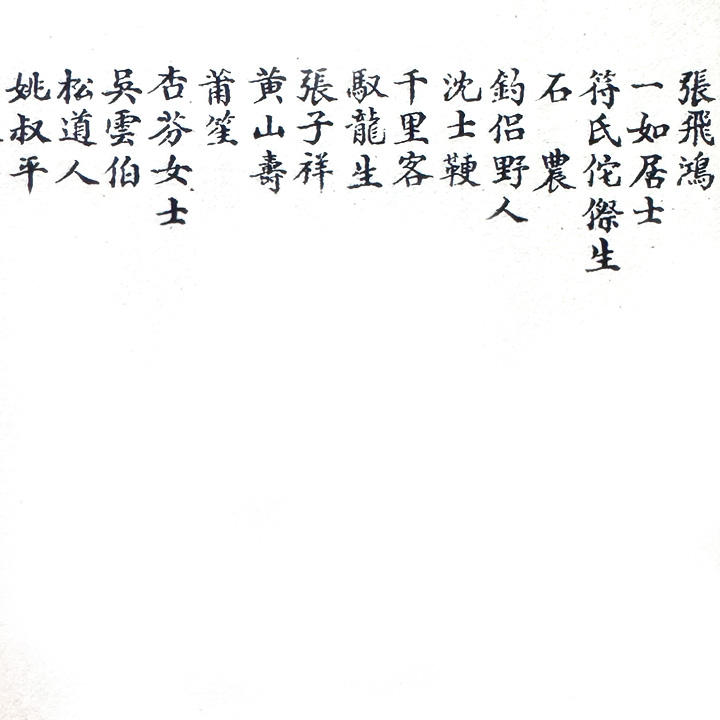 張飛鴻
一如居士
符氏侘傺生
石農
釣侶野人
沈士鞕
千里客
馭龍生
張子祥
黃山壽
莆笙
杏芬女士
吳雲伯
松道人
姚叔平